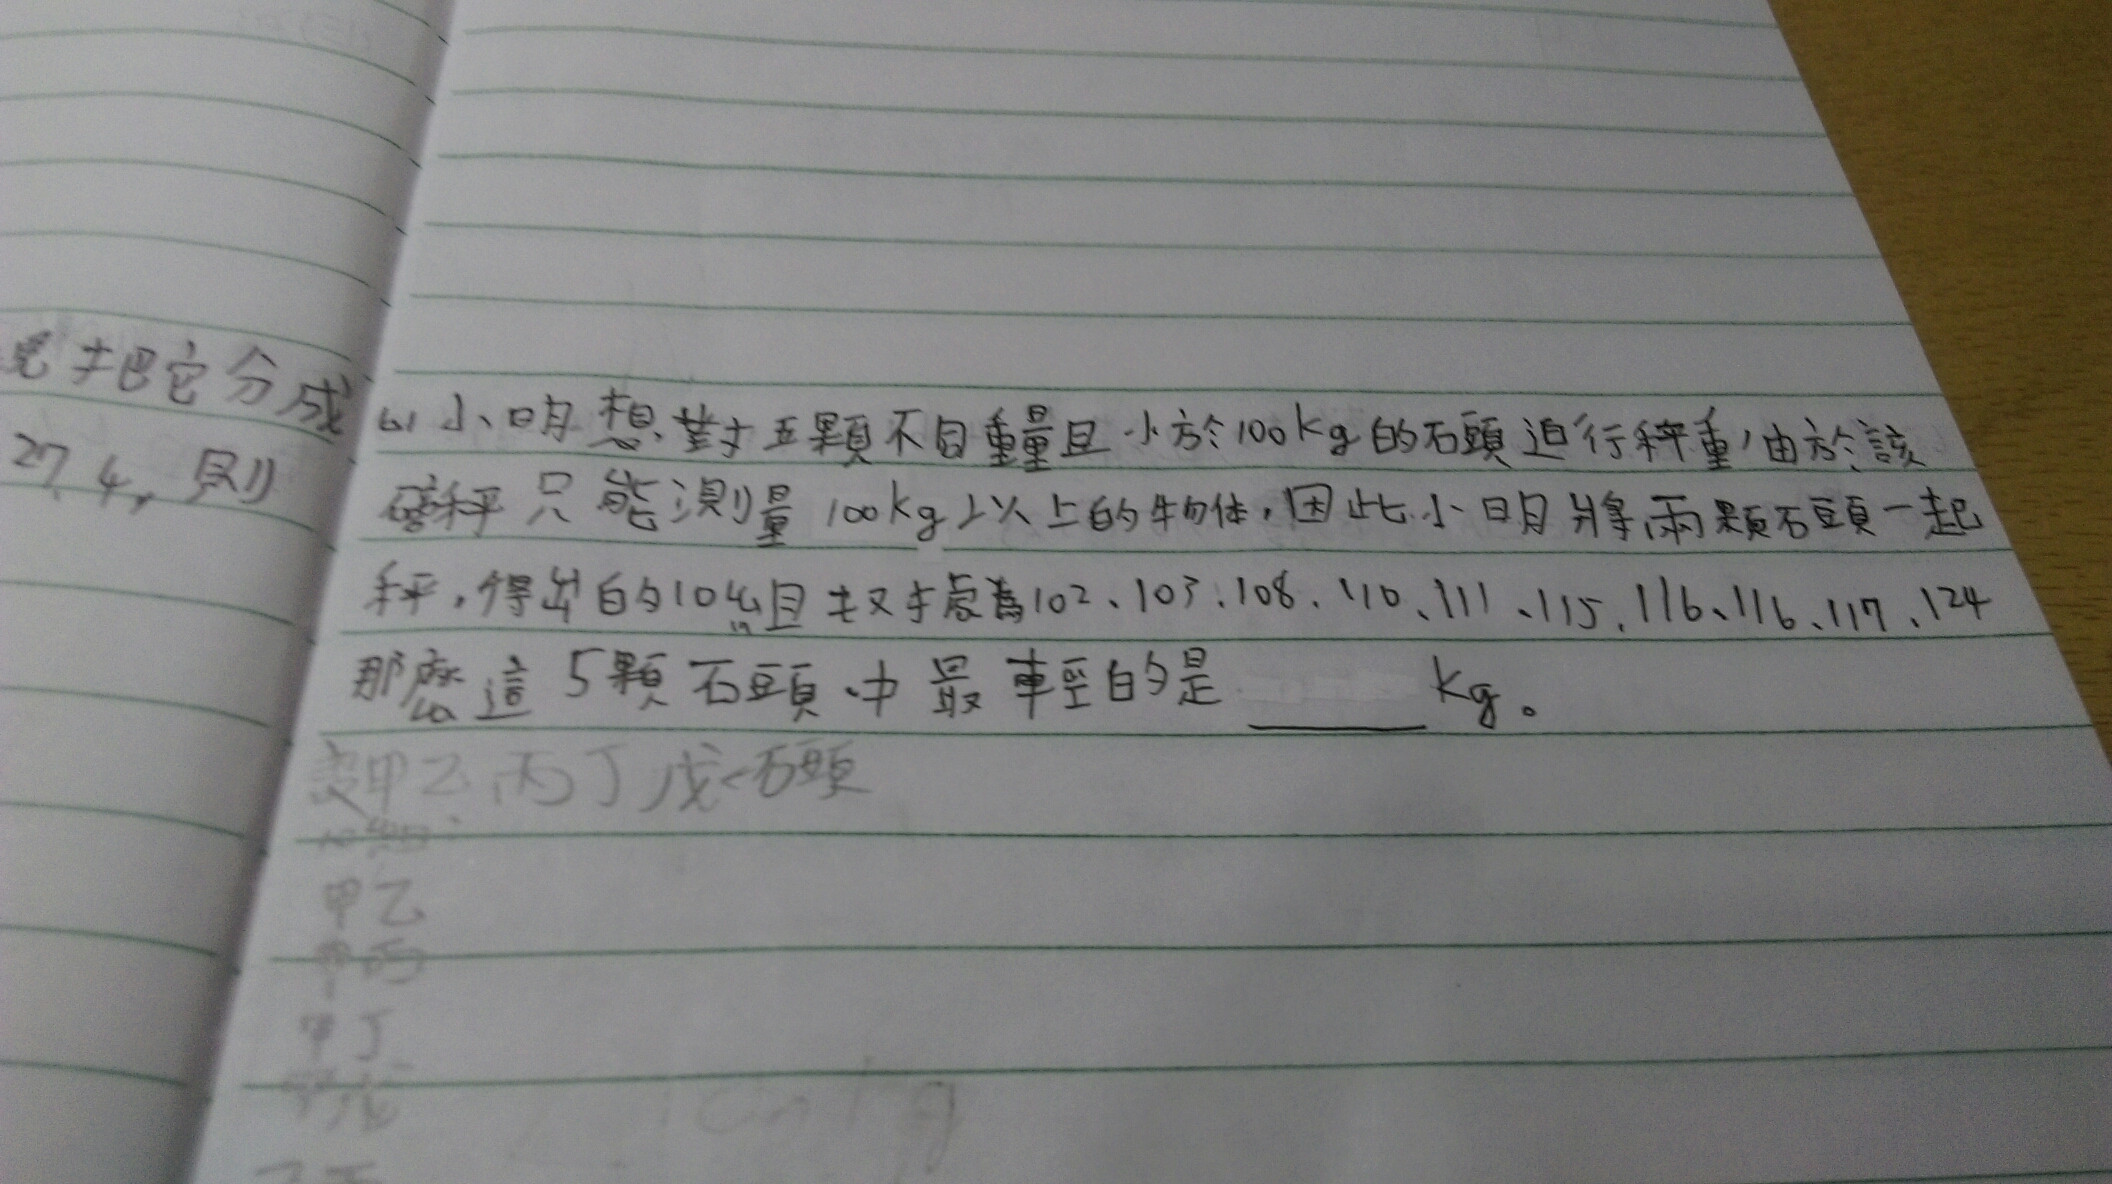 兒把它分成
27, 4, 則
6) 小明想對五顆不同重量且小於100kg的石頭進行秤重,由於該
磅秤只能測量100kg以上的物体,因此小明將兩顆石頭一起
秤,得出的10組且數據為102、103、108、110、111、115、116、116、117、124
那麼這5顆石頭中最輕的是____kg。
設甲乙丙丁戊<石頭
甲乙
甲丙
甲丁
甲戊
kg